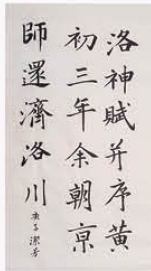 洛神賦并序黃
初三年余朝京
師還濟洛川
庚子潔芳